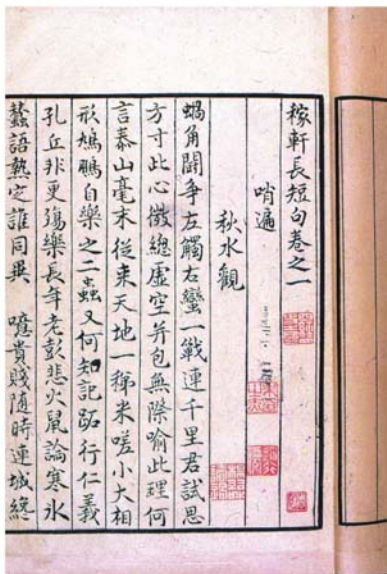 稼軒長短句卷之一
哨遍
秋水觀
蝸角鬭爭左觸右蠻一戰連千里君試思
方寸此心微總虛空并包無際喻此理何
言泰山毫末從来天地一稊米嗟小大相
形鳩鵬自樂之二蟲又何知記跖行仁義
孔丘非更殤樂長年老彭悲火鼠論寒氷
蠶語熱定誰同異 噫貴賤隨時連城纔